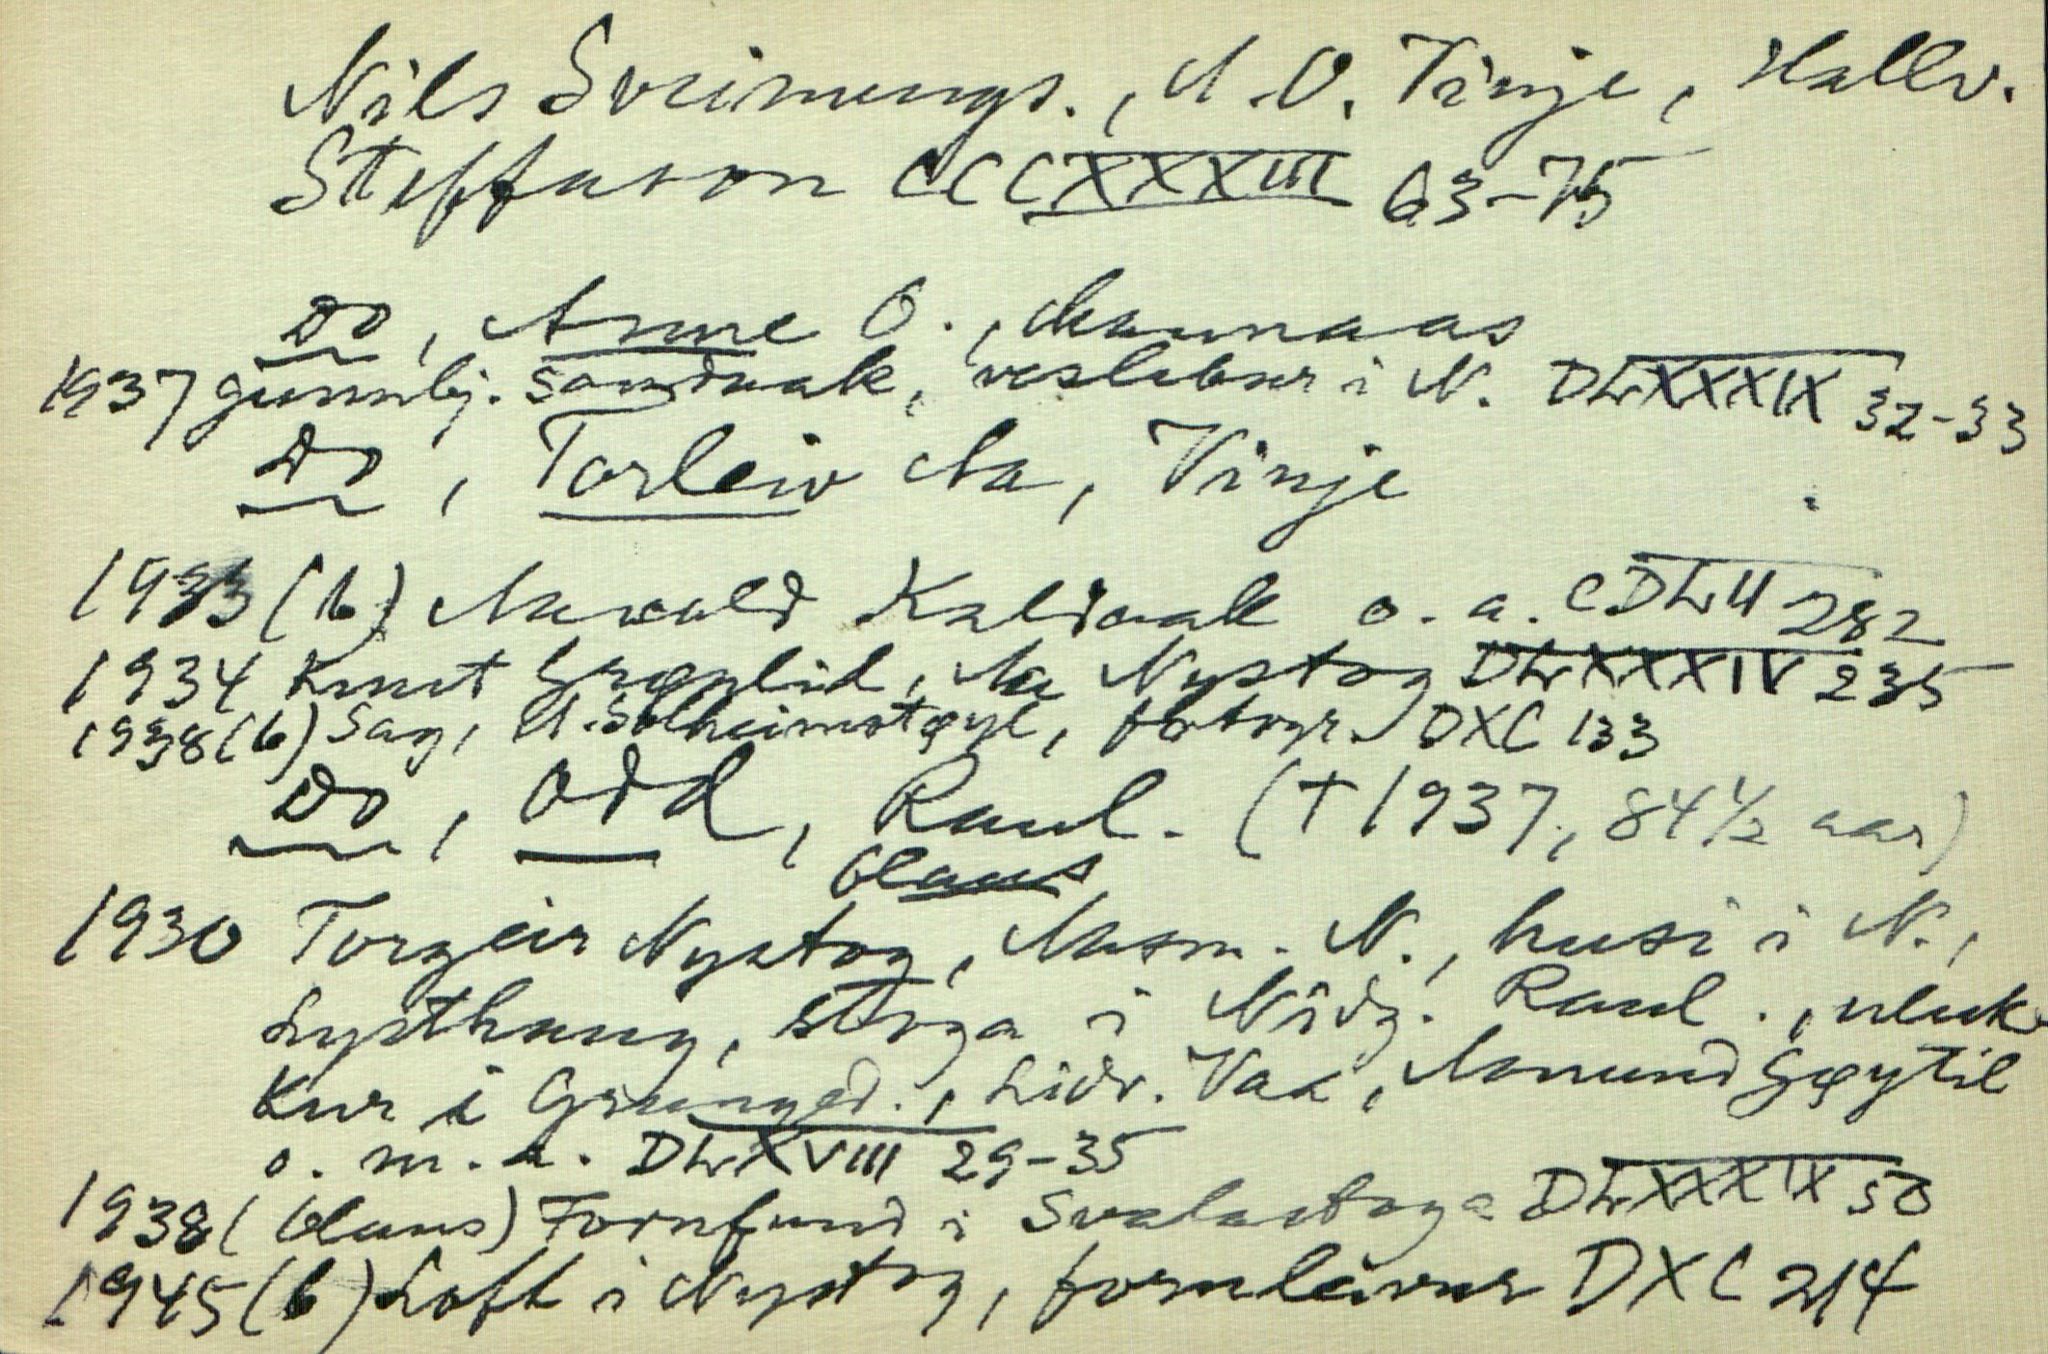 Nils Sveinungs., A.O. Vinje, Hallv.
Steffason CCCXXXIII 63-75
Do, Anne O.,
1937 Gunnbj. Sandsaak, veslebur i N. DLXXXIX 32-33
Do, Torleiv Aa, Vinje
1933 (b) Aasvald Kaldaak o. a. CDLII 282
1934 Knut Grøplid, Aa Nystog DLXXXIV 235
1938 (b) Sag, A. Solheimstøyl, fotogr. DXC 133
Do, Odd, Raul. († 1937, 84½ aar)
Olaus
1930 Torgeir Nystog, Aasm. N., husi i N.,
Lysthaug, stoga i Nidg. Raul.,
Kur i Grunged., Lidv. Vaa, Aamund Gøytil
o. m. a. DLXVIII 29-35
1938 (Olaus) Fornfund i Svalastoga DLXXXIX 50
1945 (b) Loft i Nystog, fornleivur DXC 214